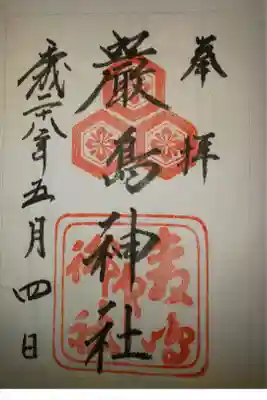 奉拝
嚴島神社
平成二十八年五月四日
嚴島
神社